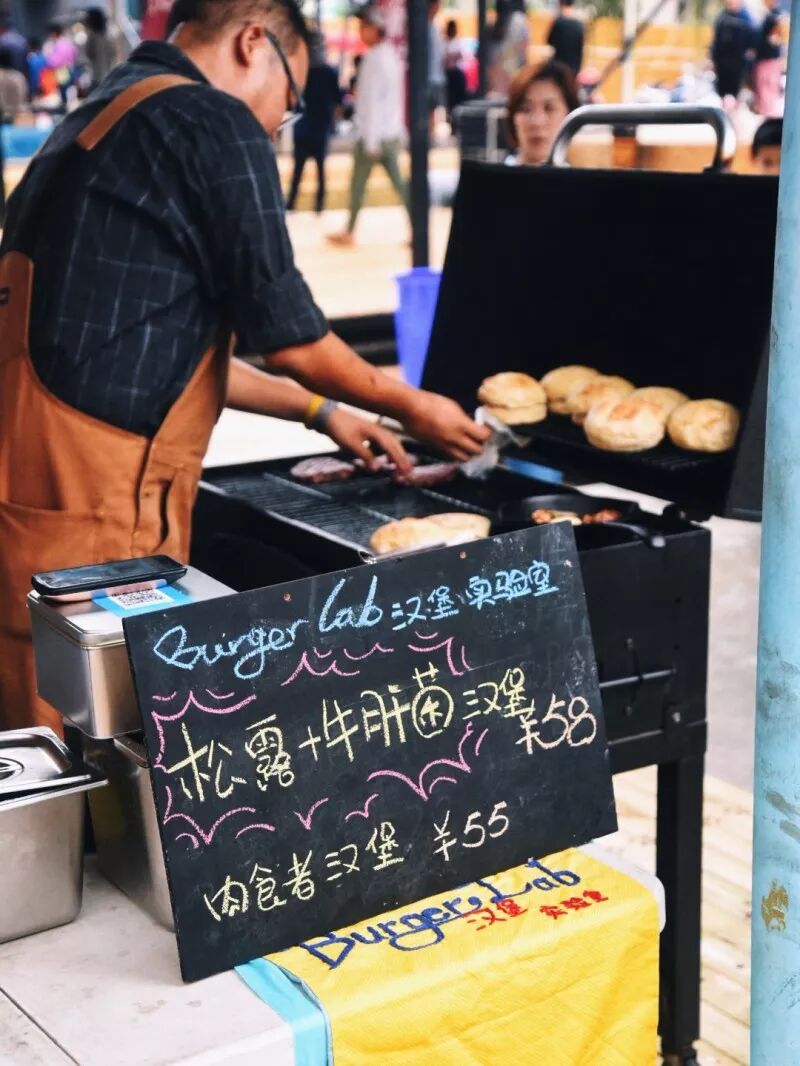 Burger Lab 汉堡 实验室
松露+牛肝菌汉堡 ¥58
肉食者汉堡 ¥55
Burger Lab
汉堡 实验室